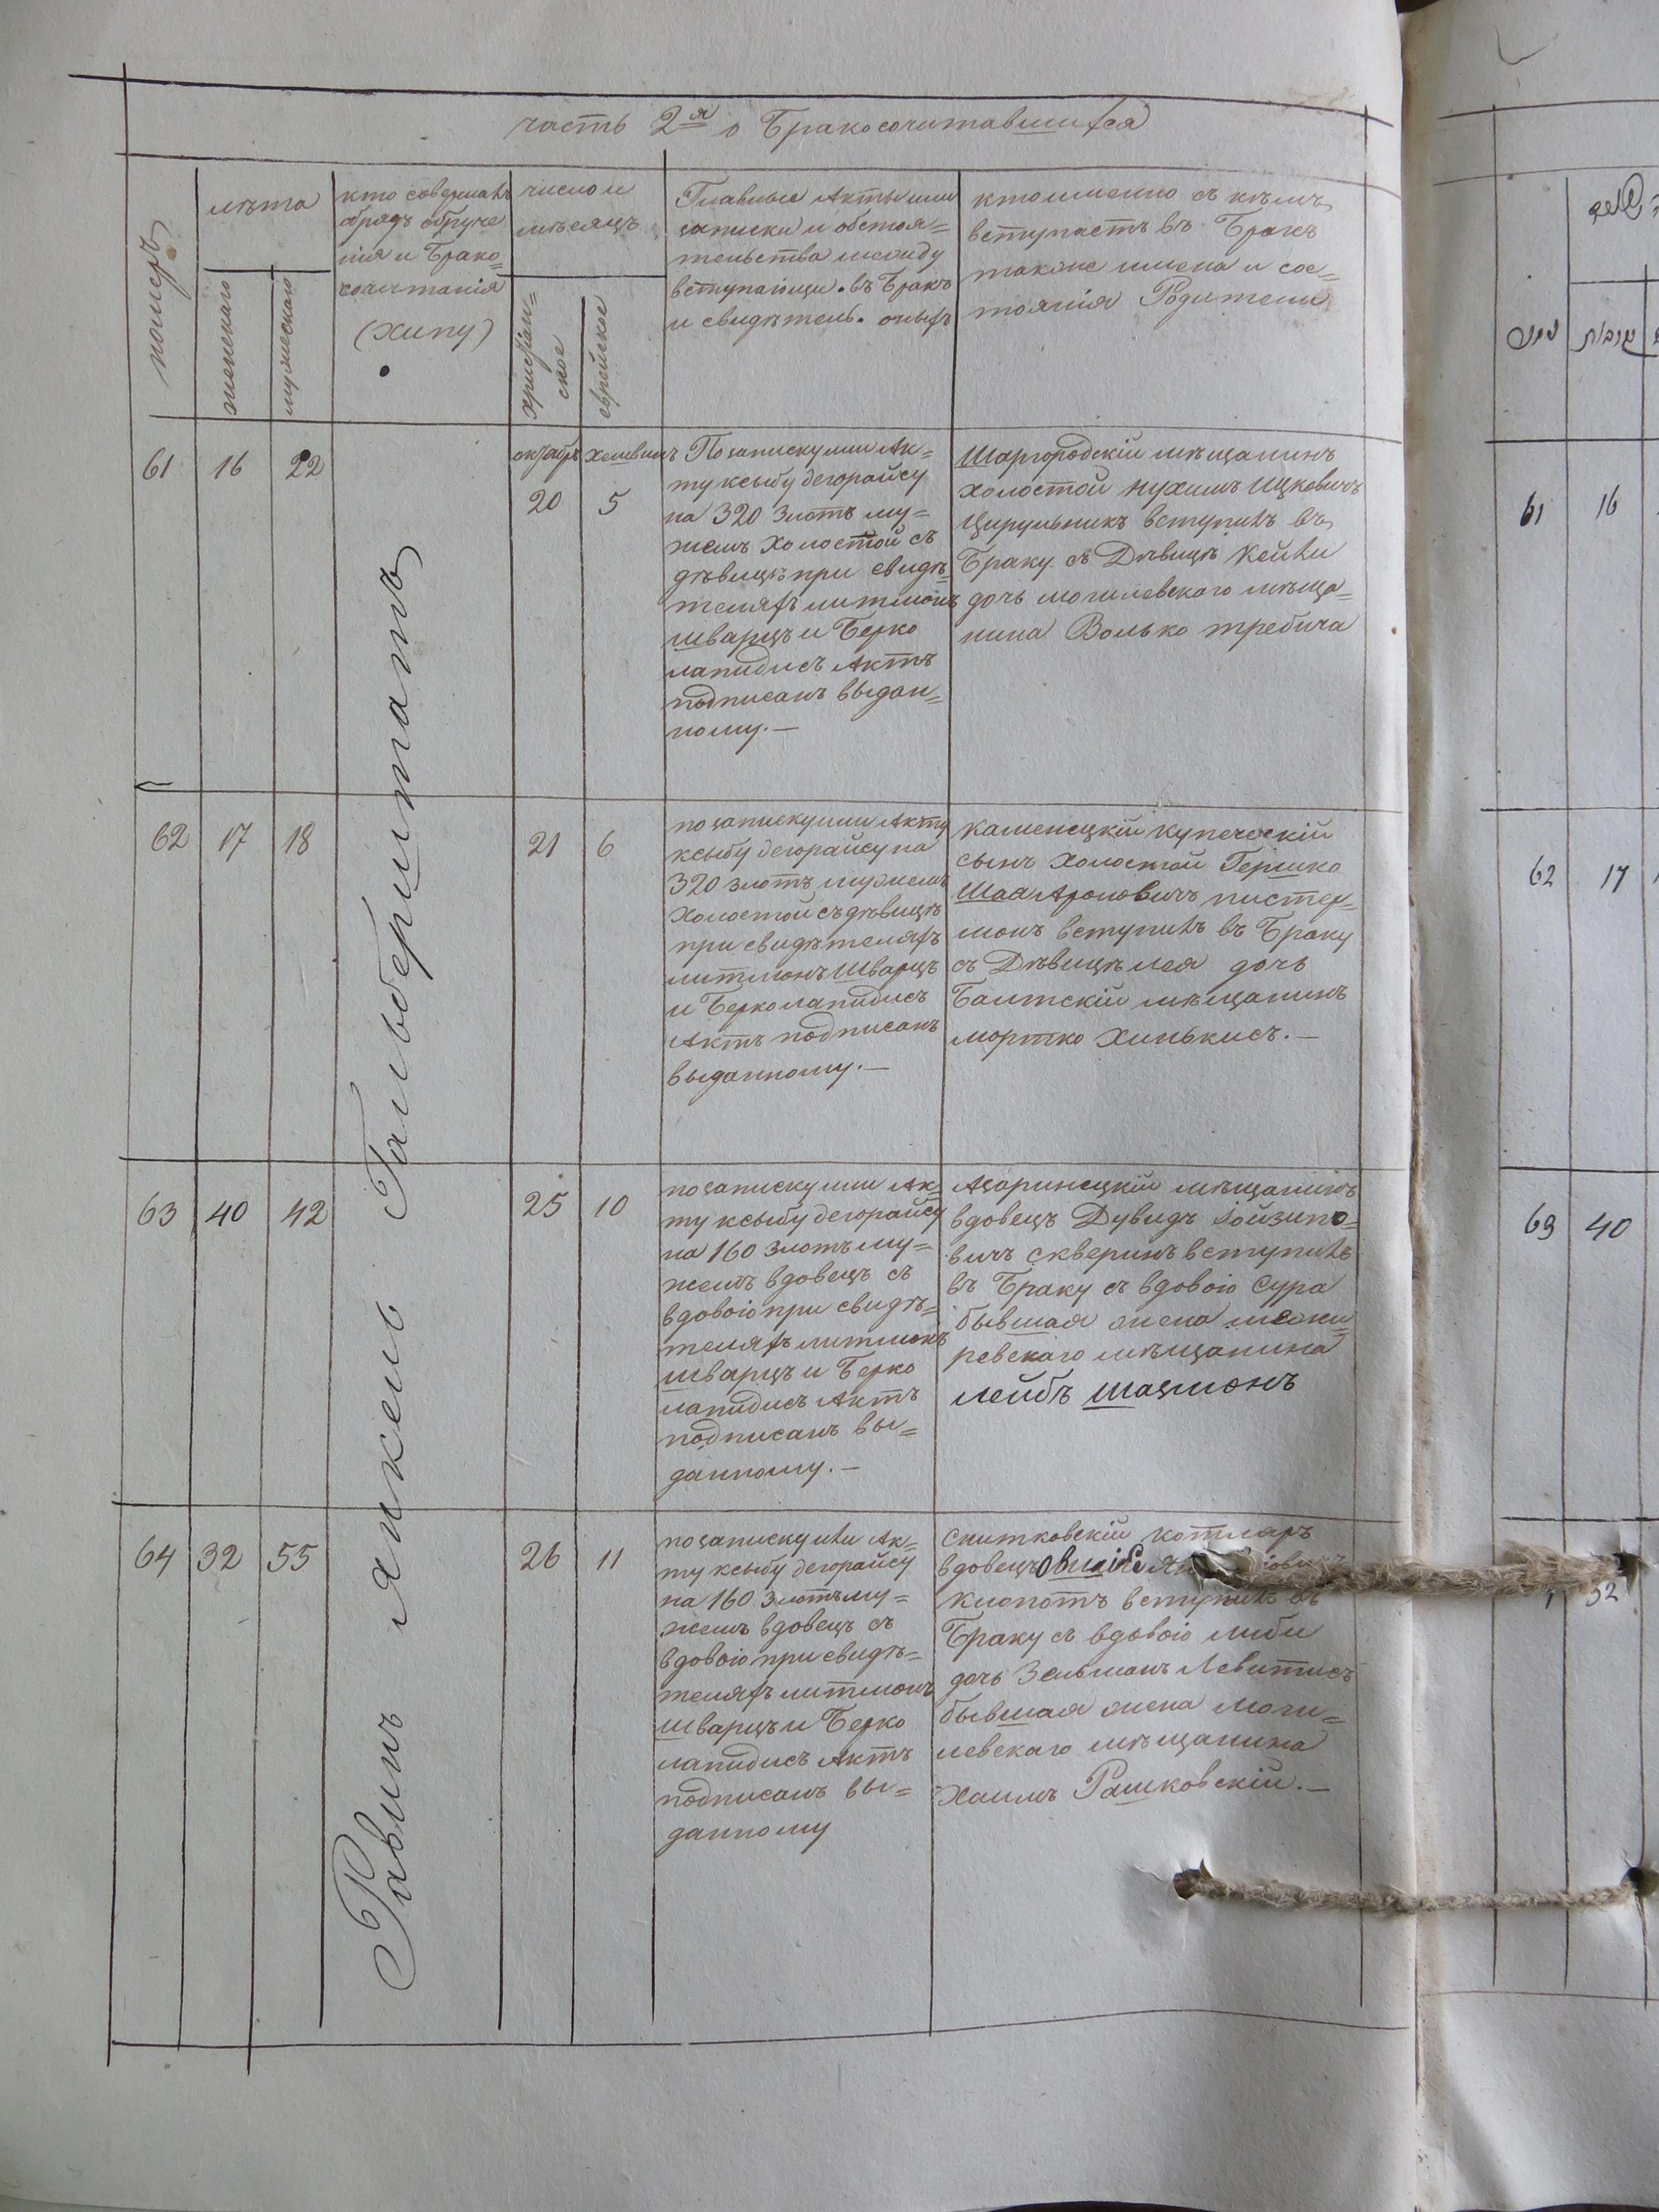 часть 2я о Бракосочитавшихся
номеръ
лѣта
женскаго
мужескаго
кто совершалъ
абрядъ обруче
нія и Брако=
сочитанія
(хипу)
число и
мѣсяцъ
христіян=
ское
еврейское
Главные Акты или
записки и обстоя=
тельства между
вступающи. въ Бракъ
и свидѣтель. оныхъ
кто именно съ кѣмъ
вступаетъ въ Бракъ
также имена и сос=
тоянія Родители
Равинъ янкель Гальберштатъ
61
16
22
октябрь
20
хешвинъ
5
По записку или Ак=
ту ксыбу деорайсу
на 320 Злотъ му=
жемъ Холостой съ
дѣвицѣ при свидѣ=
теляхъ литмонъ
шварцъ и Берко
лапидисъ Актъ
подписанъ выдан=
ному.—
Шаргородскій мѣщанинъ
холостой Нухимъ Ицковичъ
Цирульникъ вступилъ въ
Браку съ Дѣвицѣ Кейли
дочь могилевского мѣща=
нина Волько требича
62
17
18
21
6
по записку или Акту
ксыбу деорайсу на
320 злотъ мужемъ
Холостой съ дѣвицѣ
при свидѣтеляхъ
литмонъ Шварцъ
и Берко лапидисъ
Актъ подписанъ
выданному.—
Каменецкій Купеческій
сынъ Холостой Гершко
Шая Ароновичъ пистер=
монъ вступилъ въ Браку
съ Дѣвицѣ лея дочь
Балтскій мѣщанинъ
мортко Хинькисъ.—
63
40
42
25
10
по записку или Ак=
ту ксыбу деорайсу
на 160 Злотъ му=
жемъ вдовецъ съ
вдовою при свидѣ=
теляхъ литмонъ
шварцъ и Берко
лапидисъ Актъ
подписанъ вы=
данному.—
Азаринецкій мѣщанинъ
вдовецъ Дувидъ Іойзипо=
вичъ скверинъ вступилъ
въ Браку съ вдовою Сура
бывшая жена межи=
ревскаго мѣщанина
лейбъ шацмонъ
64
32
55
26
11
по записку или Ак=
ту ксыбу деорайсу
на 160 Злотъ му=
жемъ вдовецъ съ
вдовою при свидѣ=
теляхъ литмонъ
шварцъ и Берко
лапидисъ Актъ
подписанъ вы=
данному
Снитковскій котляръ
вдовецъ
Клопотъ вступилъ въ
Браку съ вдовою либи
дочь Зельманъ Левитисъ
бывшая жена Моги=
левскаго мѣщанина
Хаимъ Рашковскій.—
61
16
62
17
63
40
32